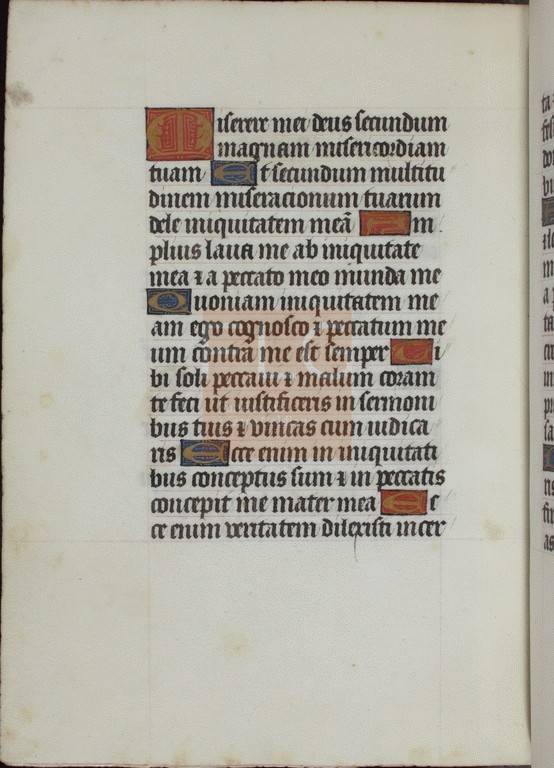 Miserere mei deus secundum
magnam misericordiam
tuam Et secundum multitu
dinem miseracionum tuarum
dele iniquitatem meā Am
plius laua me ab iniquitate
mea ⁊ a peccato meo munda me
Quoniam iniquitatem me
am ego cognosco ⁊ peccatum me
um contra me est semper Ti
bi soli peccaui ⁊ malum coram
te feci ut iustificeris in sermoni
bus tuis ⁊ vincas cum iudica
ris Ecce enim in iniquitati
bus conceptus sum ⁊ in peccatis
concepit me mater mea Ec
ce enim veritatem dilexisti incer